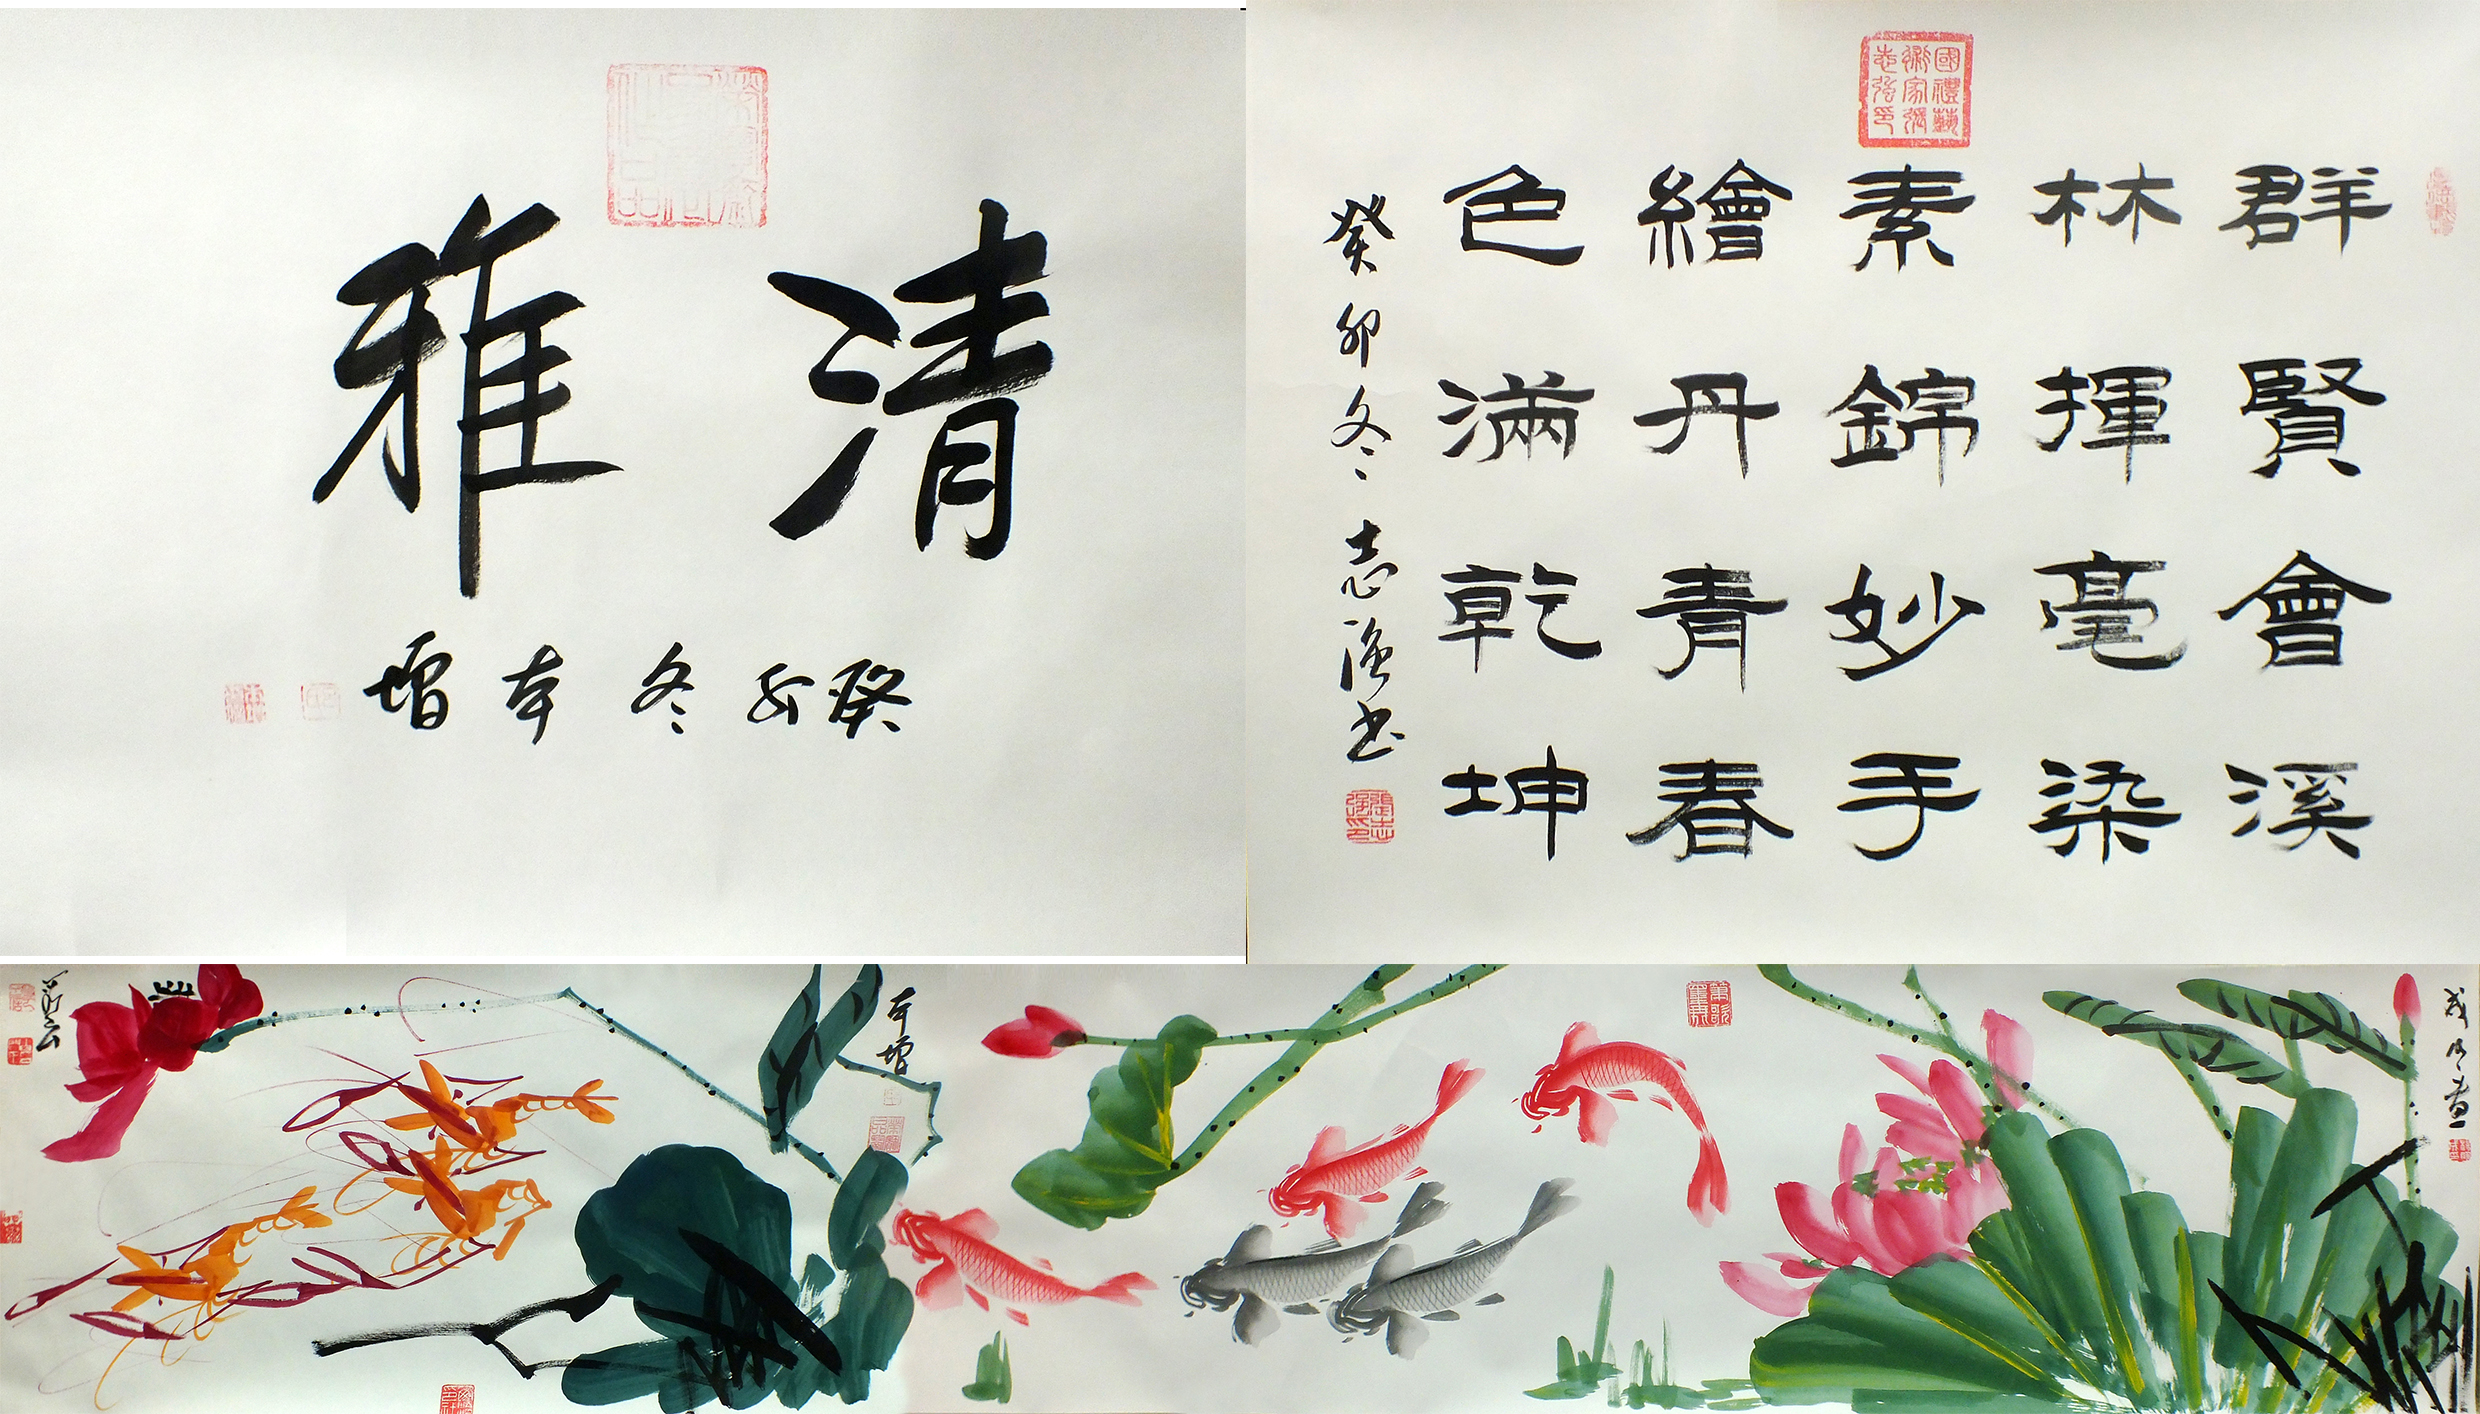 清雅
癸卯冬本增
群賢會溪
林揮毫染
素錦妙手
繪丹青春
色滿乾坤
癸卯冬志強书
國禮藝
術家張
志強印
張志
強印
本增